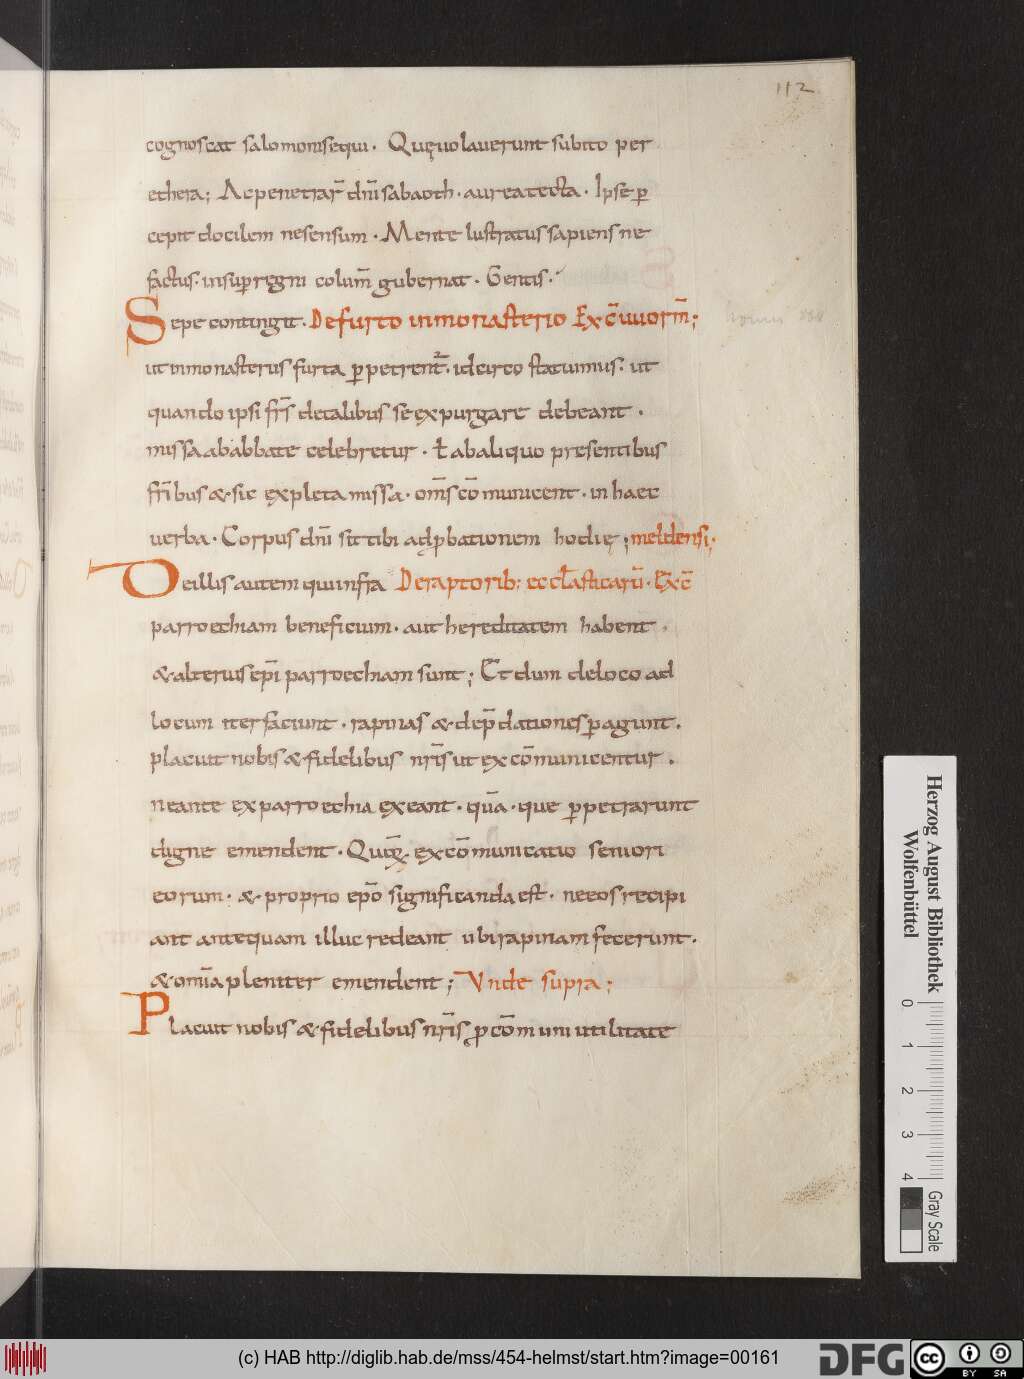 112
cognoscat salomonisequi. Quęuolauerunt subito per
ethera; Acpenetrar̄ dn̄i sabaoth. aurea tecta. Ipse ꝑ
cepit docilem nesensum. Mente lustratus sapiens ne
factus. insuꝑ regni colum̄ gubernat. Gentis.
Sepe contingit. De furto in monasterio Ex c̄ uuorm̄;
ut in monasteriis furta ꝑpetrent̄. idcirco statuimus. ut
quando ipsi fr̄s detalibus se expurgare debeant.
missa ab abbate celebretur. ł ab aliquo presentibus
fr̄ibus & sic expleta missa. om̄s cōmunicent. in haec
uerba. Corpus dn̄i sit tibi ad ꝓbationem hodię; meldensi;
De illis autem qui infra De raptorib: eccl̄asticarū. Exc̄
parroechiam beneficium. aut hereditatem habent.
& alterius ep̄i parroechiam sunt; Et dum de loco ad
locum iter faciunt. rapinas & dep̄dationes ꝑagunt.
placuit nobis & fidelibus nr̄is ut excōmunicentur.
ne ante ex parroechia exeant. quā. que ꝑpetrarunt
digne emendent. Quę̄. excōmunicatio seniori
eorum. & proprio ep̄o significanda est. ne eos recipi
ant antequam illuc redeant ubi rapinam fecerunt.
& om̄ia pleniter emendent; Unde supra;
Placuit nobis & fidelibus nr̄is ꝓ cōmuni utilitate
Herzog August Bibliothek
Wolfenbüttel
0 1 2 3 4
Gray Scale
(c) HAB http://diglib.hab.de/mss/454-helmst/start.htm?image=00161
DFG
cc BY SA